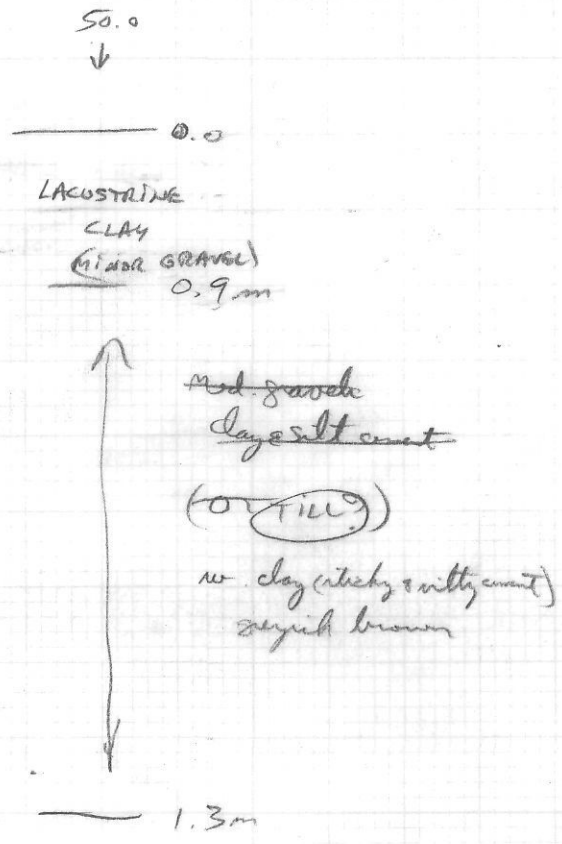 50.0
0.0
LACUSTRINE
CLAY
(MINOR GRAVEL)
0.9 m
Med. gravel
clay & silt cement
(or TILL?)
w. clay (sticky & silty cement)
greyish brown
1.3m